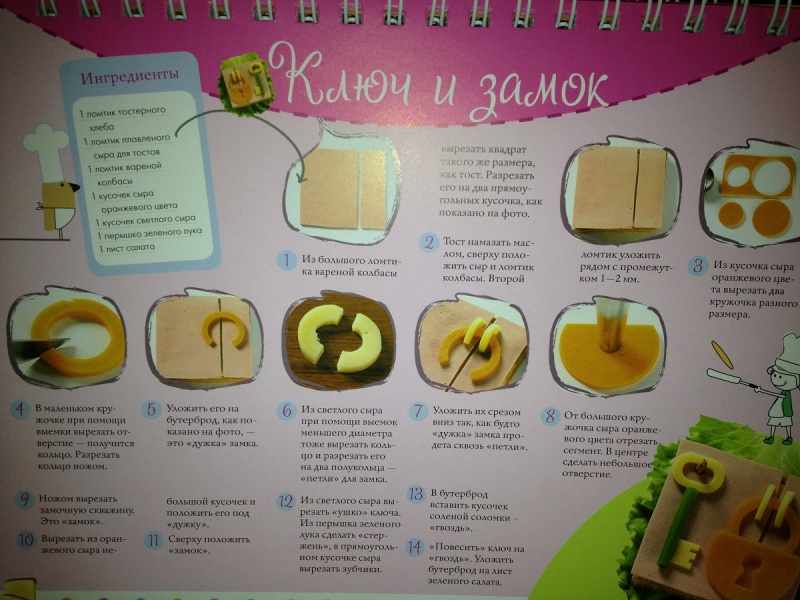 Ключ и замок
Ингредиенты
1 ломтик тостерного
хлеба
1 ломтик плавленого
сыра для тостов
1 ломтик вареной
колбасы
1 кусочек сыра
оранжевого цвета
1 кусочек светлого сыра
1 перышко зеленого лука
1 лист салата
1 Из большого ломти-
ка вареной колбасы
вырезать квадрат
такого же размера,
как тост. Разрезать
его на два прямоу-
гольных кусочка, как
показано на фото.
2 Тост намазать мас-
лом, сверху поло-
жить сыр и ломтик
колбасы. Второй
ломтик уложить
рядом с промежут-
ком 1—2 мм.
3 Из кусочка сыра
оранжевого цве-
та вырезать два
кружочка разного
размера.
4 В маленьком кру-
жочке при помощи
выемки вырезать от-
верстие — получится
кольцо. Разрезать
кольцо ножом.
5 Уложить его на
бутерброд, как по-
казано на фото, —
это «дужка» замка.
6 Из светлого сыра
при помощи выемок
меньшего диаметра
тоже вырезать коль-
цо и разрезать его
на два полукольца —
«петли» для замка.
7 Уложить их срезом
вниз так, как будто
«дужка» замка про-
дета сквозь «петли».
8 От большого кру-
жочка сыра оранже-
вого цвета отрезать
сегмент. В центре
сделать небольшое
отверстие.
9 Ножом вырезать
замочную скважину.
Это «замок».
10 Вырезать из оран-
жевого сыра не-
большой кусочек и
положить его под
«дужку».
11 Сверху положить
«замок».
12 Из светлого сыра вы-
резать «ушко» ключа.
Из перышка зеленого
лука сделать «стер-
жень», в прямоуголь-
ном кусочке сыра
вырезать зубчики.
13 В бутерброд
вставить кусочек
соленой соломки –
«гвоздь».
14 «Повесить» ключ на
«гвоздь». Уложить
бутерброд на лист
зеленого салата.